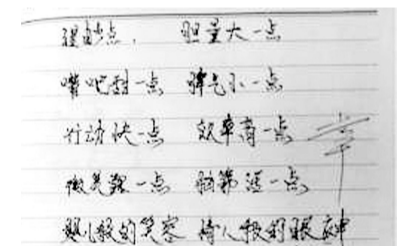 理由少一点, 胆量大一点
嘴吧甜一点 脾气小一点
行动快一点 效率高一点
微笑露一点 脑筋活一点
婴儿般的笑容 情人般的眼神